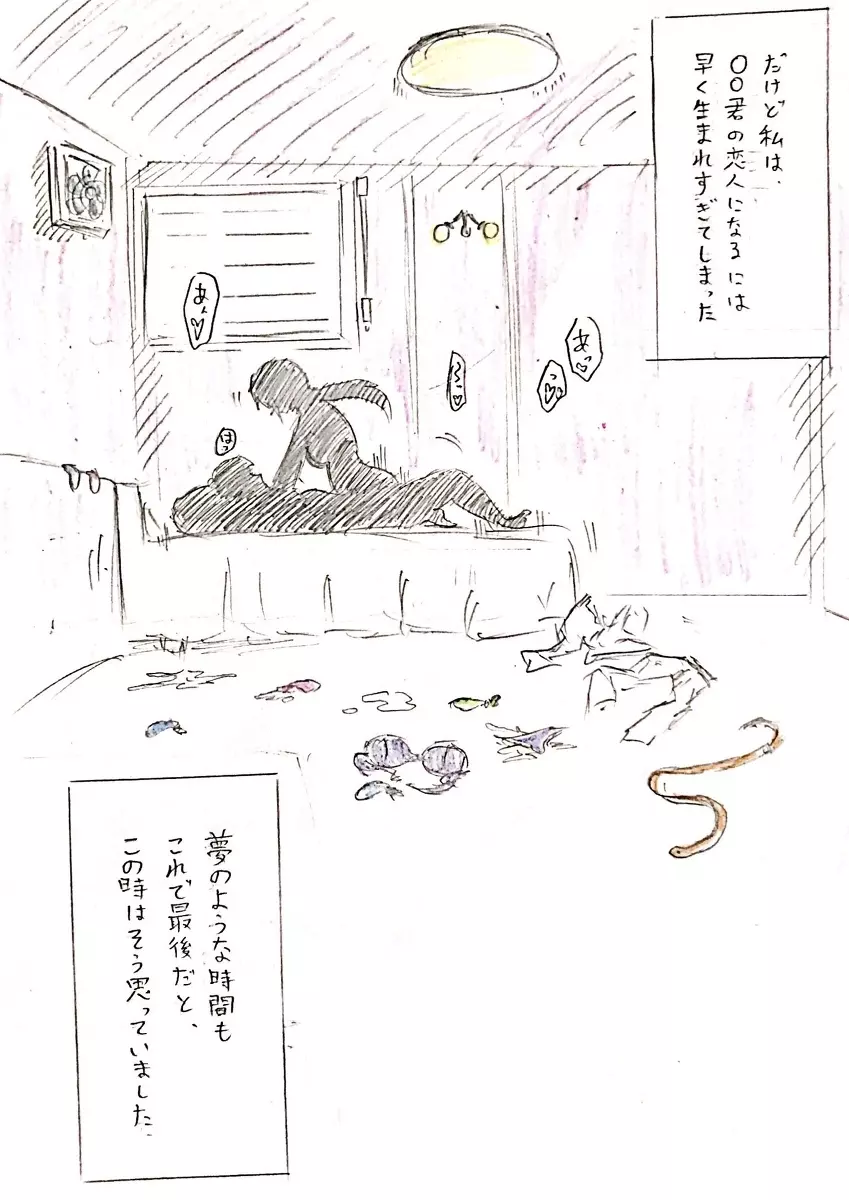 だけど私は、
〇〇君の恋人になるには
早く生まれすぎてしまった
あぁ♡
はっ
あっ♡
夢のような時間も
これで最後だと、
この時はそう思っていました